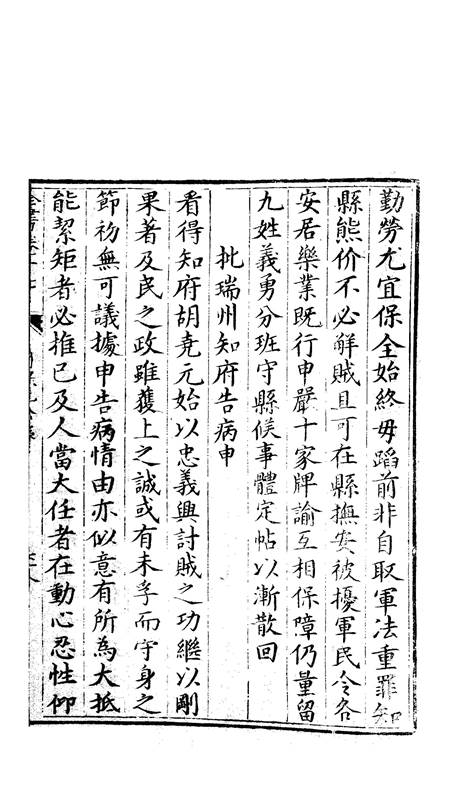 勤勞尤宜保全始終毋蹈前非自取軍法重罪知
縣熊价不必觧賊且可在縣撫安被擾軍民令各
安居樂業既行申嚴十家牌諭互相保障仍量留
九姓義勇分班守縣候事體定帖以漸散回
批瑞州知府告病申
看得知府胡堯元始以忠義興討賊之功繼以剛
果著及民之政雖獲上之誠或有未孚而守身之
節初無可議據申告病情由亦似意有所為大抵
能絜矩者必推已及人當大任者在動心忍性仰